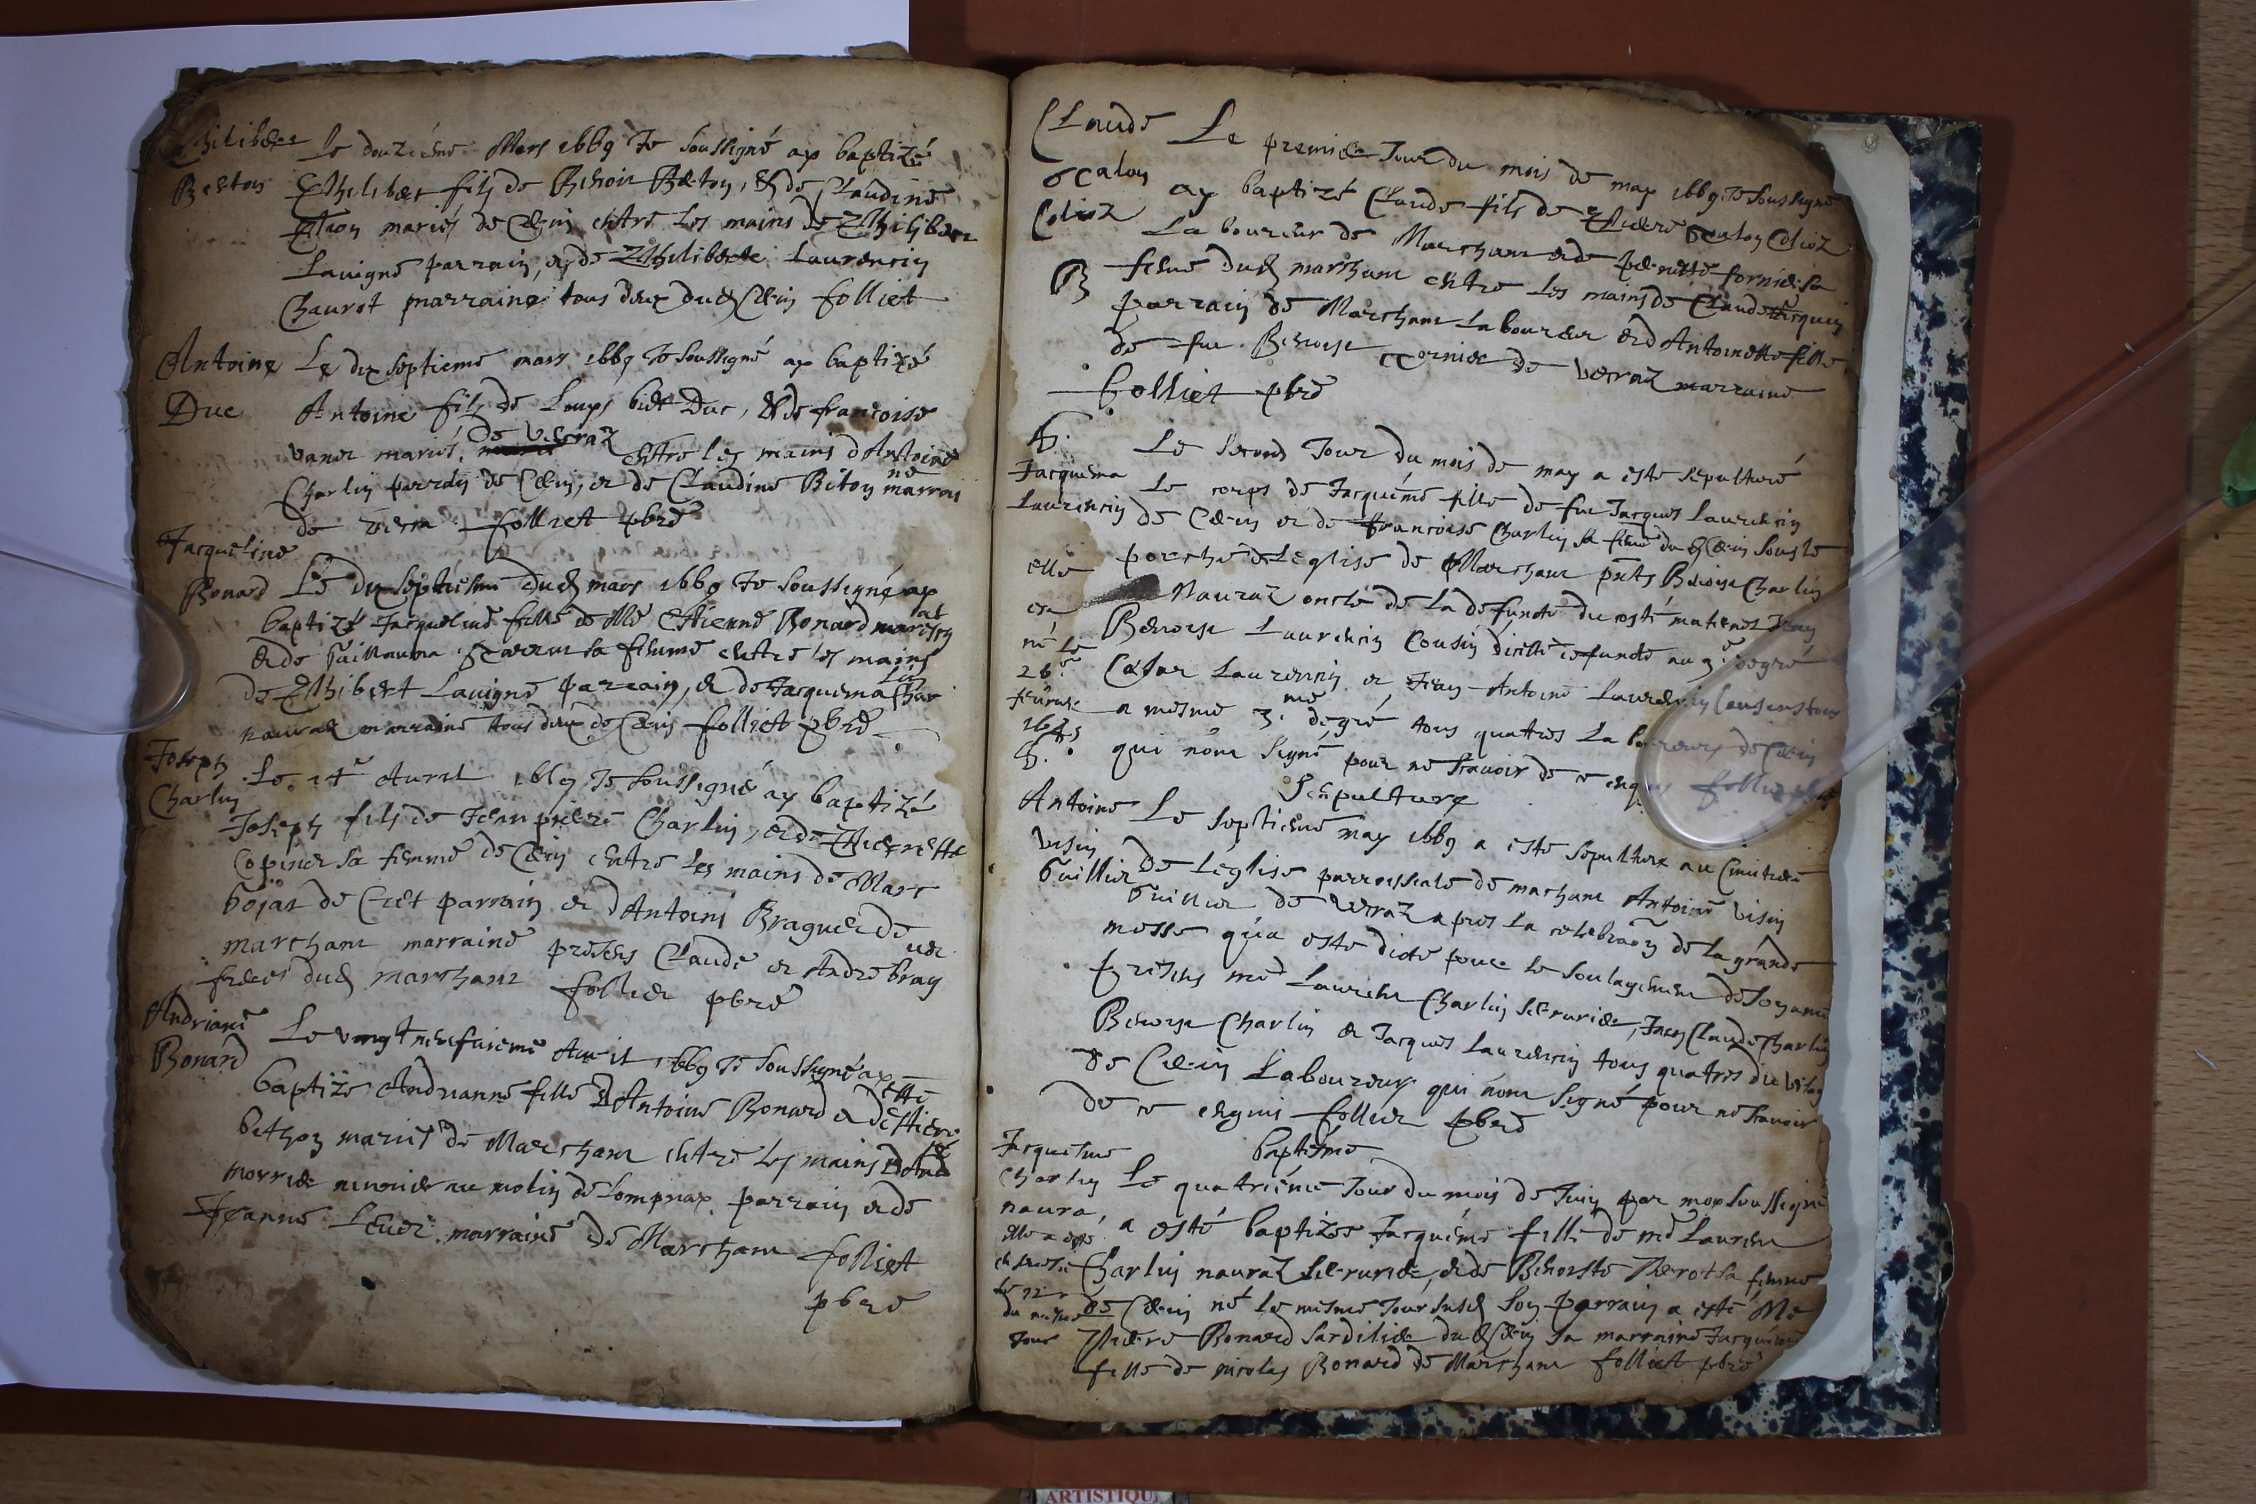 Philiber
Berton
Le douziéme Mars 1669 Je soussigné ay baptizé
Philiber fils de Benoit Beton, & de Claudine
mariés de Cerin entre les mains de Philiber
Lauigne parrain, et de Philiberte Laurencin
Chaurot marraine tous deux dud Cerin Folliet
Antoine
Duc
Le dix septieme mars 1669 Je soussigné ay baptizé
Antoine fils de Loups Duc, & de françoise
mariés, de Veraz entre les mains d'Antoine
Charlin parrain de Cerin, et de Claudine Biton marrai
ne
de Folliet pbre
Jacqueline
Bonard
Le dix septiesme dud mars 1669 Je soussigné ay
baptizé Jacqueline fille de Me Estienne Bonard mareschal
et de Guillauma sa femme entre les mains
de Philibert Lauigne parrain, et de Jacquema Char
lin
nauraz marraine tous deux de Cerin Folliet pbre
Joseph
Charlin
Le 14e Auril 1669 Je soussigné ay baptizé
Joseph fils de Jean pierre Charlin, et de Pierrette
Copinet sa femme de Cerin entre les mains de Marc
bojat de Cret parrain et d'Antoine Braguer de
marchant marraine presens Claude et André brag
uer
freres dud marchant Folliet pbre
Andriane
Bonard
Le vingt neufuieme Auril 1669 Je soussigné ay
baptize Andrianne fille d'Antoine Bonard et d'Estiene
tte
bethon mariés de Marchant entre les mains d'And
ré
morrier munier au molin de Lompnax parrain et de
Jeanne marraine de Marchant Folliet
pbre
Claude
Colioz
B
Le premier Jour du mois de may 1669 Je soussigné
ay baptizé Claude fils de Pierre Colioz
Laboureur de Marchant et de pernette fornier sa
feme dud marchant entre les mains de Claude Jacquin
parrain de Marchant Laboureur et d'Antoinette fille
de feu Benoist Cornier de Veraz marraine
Folliet pbre
S.
Jacquema
Laurencin
elle
est
né le
26e
feurier
1645
S.
Le second Jour du mois de may a esté sepulturé
Le corps de Jacquéme fille de feu Jacques Laurencin
de Cerin et de francoise Charlin sa feme dud Cerin sous le
porche de l'eglise de Marchant pnts Benoist Charlin
Nauraz oncle de la defunte du costé maternel Jean
Benoist Laurencin Cousin d'icelle defunte au 3e degré
Cesar Laurencin et Jean Antoine Laurencin Cousins tous
a mesme 3me degré, tous quatres Laboureurs de Cerin
qui n'ont signé pour ne scauoir de ce enquis Folliet pbre
Sepulture
Antoine
Visin
Guillier
Le septiéme may 1669 a esté sepulturé au Cimitiere
de L'eglise parrossiale de marchant Antoine Visin
Guillier de Veraz apres la celebraon de la grande
messe qu'a esté dicte pour le soulagement de son ame
presens me Laurent Charlin serrurier, Jean Claude Charlin
Benoist Charlin et Jacques Laurencin tous quatres du vilage
de Cerin Laboureurs qui n'ont signé pour ne scauoir
de ce enquis Folliet pbre
baptéme
Jacqueme
Charlin
naura,
elle a esté
Le 12
du mesme
Jour
Le quatriéme Jour du mois de Juin par moy soussigné
a esté baptizée Jacquéme fille de me Laurent
Charlin nauraz serrurier, et de Benoiste sa femme
de Cerin né le mesme Jour susd son parrain a esté Me
Pierre Bonard dud Cerin sa marraine Jacquéme
fille de nicolas Bonard de Marchant Folliet pbre
ARTISTIQU